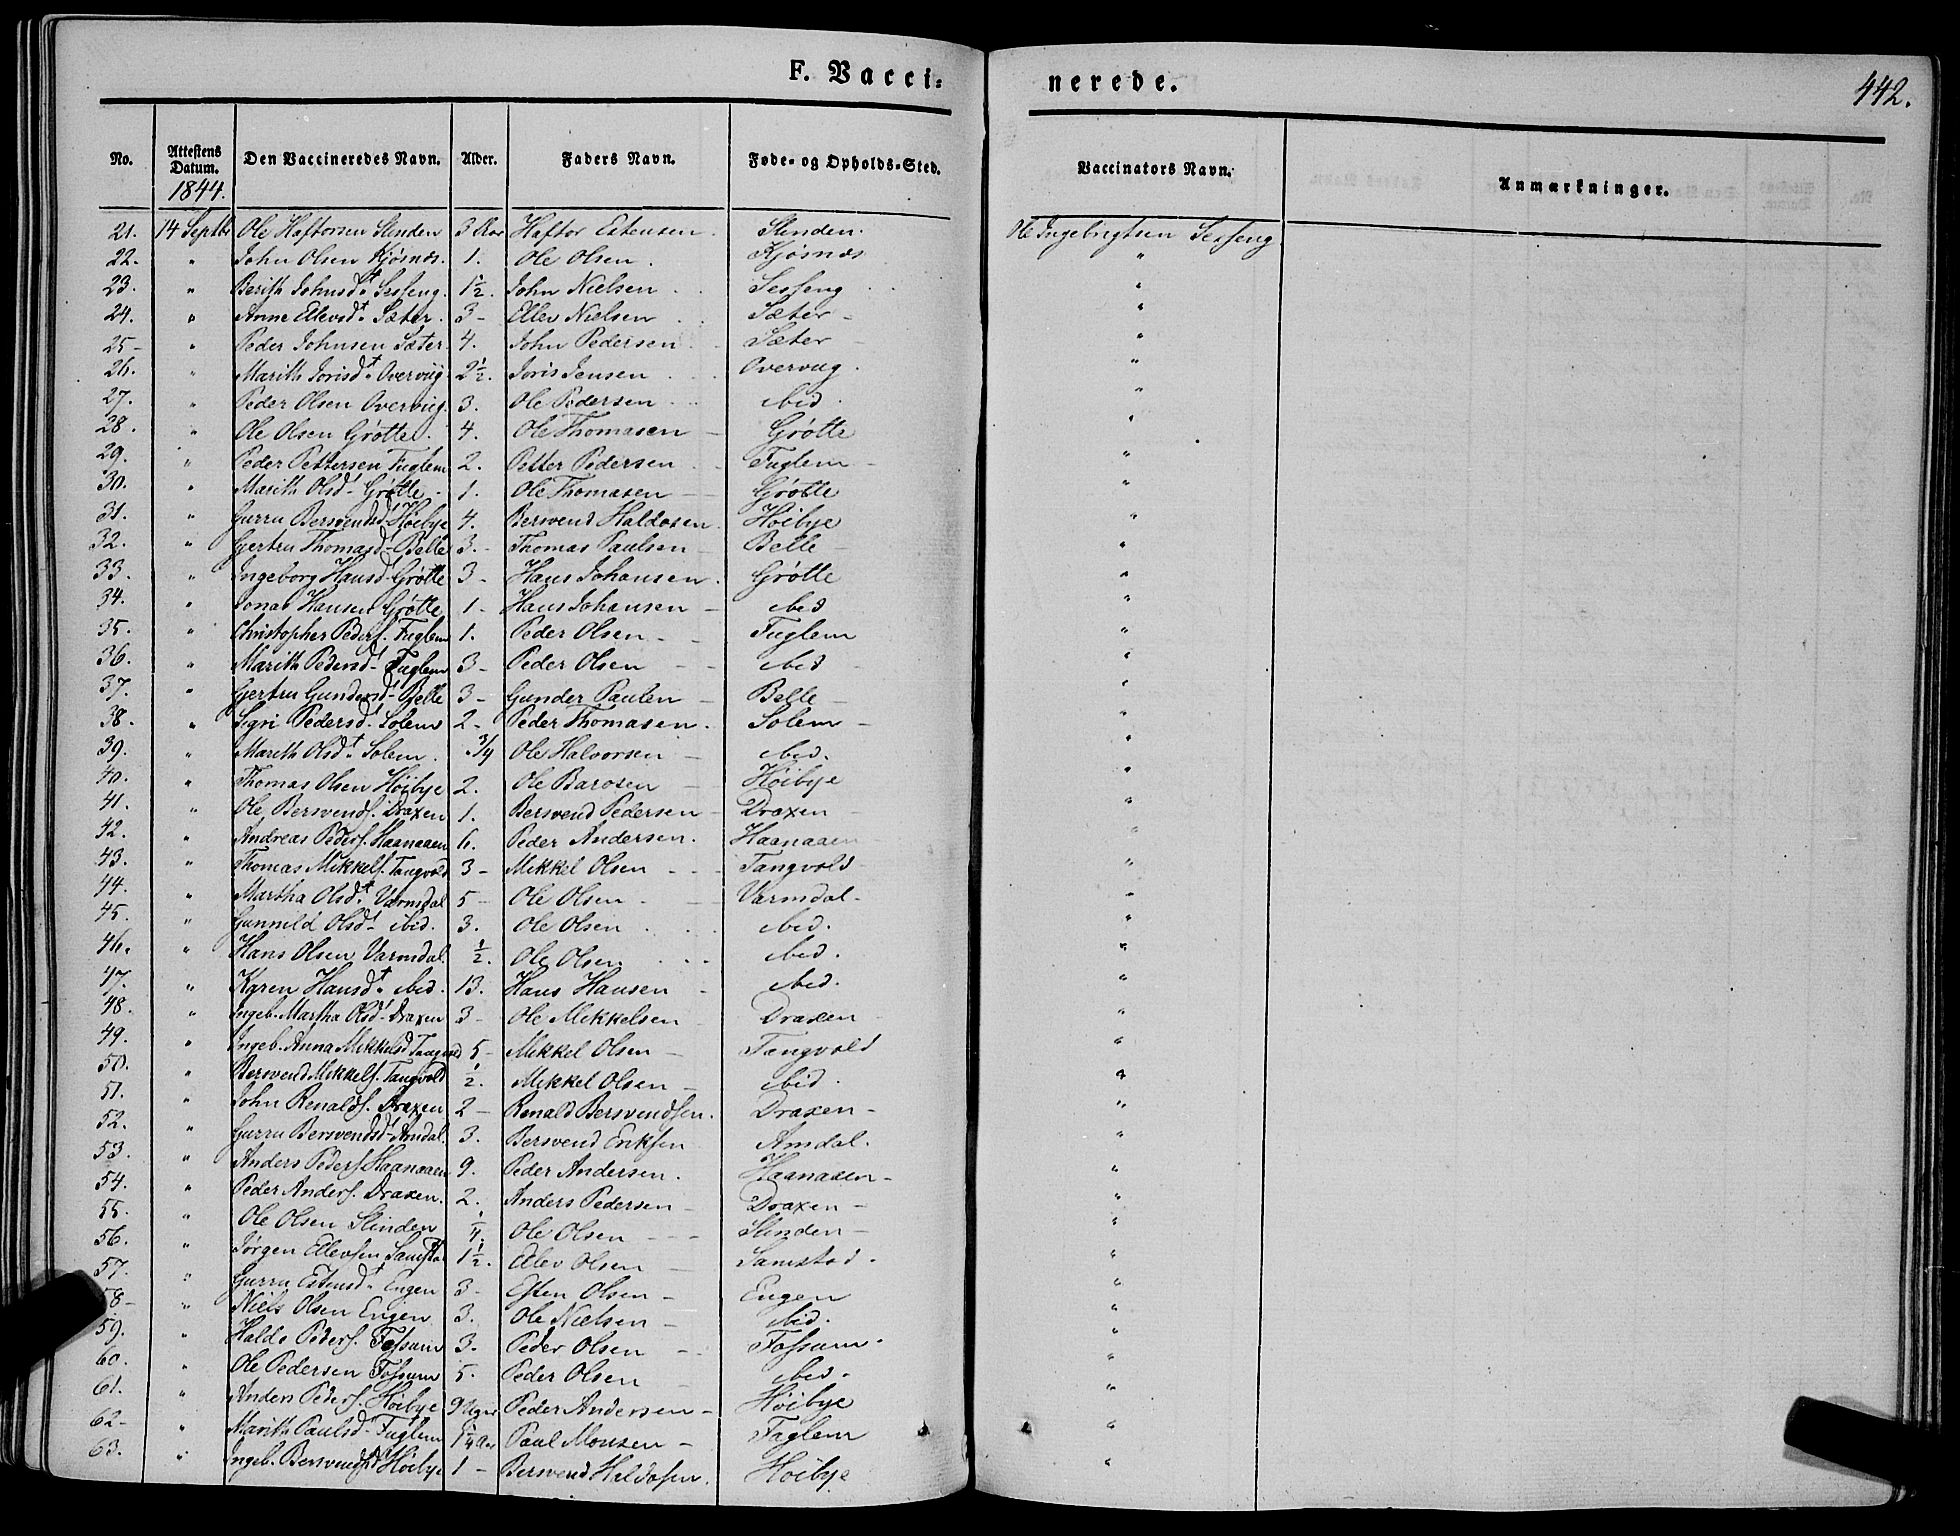 F. Vacci=
nerede.
442.
No. Attestens Datum. Den Vaccineredes Navn. Alder. Faders Navn. Føde- og Opholds-Sted. Vaccinators Navn. Anmærkninger.
1844.
21. 14 Septbr Ole Haftorsen Slinden 3 Aar Haftor Estensen. Slinden. Ole Ingebrigtsen Sesseng
22. " John Olsen Kjøsnæs. 1. Ole Olsen. Kjøsnæs "
23. " Berith Johnsdt. Sesseng. 1½. John Nielsen Sesseng "
24. " Anne Ellevsdt. Sæter. 3- Ellev Nielsen Sæter - "
25- " Peder Johnsen Sæter. 4. John Pedersen Sæter - "
26. " Marith Jorisdt. Overvug. 2½. Joris Jensen Overvug. "
27. " Peder Olsen Overvug. 3. Ole Pedersen ibid. "
28. " Ole Olsen Grøtte. 4. Ole Thomasen - Grøtte "
29. " Peder Pettersen Fuglem 2. Petter Pedersen Fuglem - "
30. " Marith Olsdt. Grøtte 1. Ole Thomasen - Grøtte "
31. " Gurru Bersvendsdt. Høibye 4. Bersvend Haldosen. Høibye "
32. " Gertru Thomasdt. Belle 3.- Thomas Paulsen - Belle - "
33. " Ingeborg Hansdt. Grøtte 3- Hans Johansen. Grøtte "
34. " Jonas Hansen Grøtte 1- Hans Johansen - ibid "
35. " Christopher Peders. Fuglem 1. Peder Olsen - - Fuglem "
36. " Marith Pedersdt. Fuglem 3- Peder Olsen - - ibid - "
37. " Gertru Gundersdt. Belle 3- Gunder Paulen - Belle - "
38. " Sigri Pedersdt. Solem 2- Peder Thomasen. Solem - "
39. " Marith Olsdt. Solem. 3/4 Ole Halvorsen - ibid. "
40. " Thomas Olsen Høibye 2. Ole Barosen - Høibye "
41. " Ole Bersvends. Draxen 1. Bersvend Pedersen - Draxen - "
42. " Andreas Peders. Haanaaen 6. Peder Andersen. Haanaaen "
43. " Thomas Mikkels. Tangvold 3- Mikkel Olsen - - - Tangvold "
44. " Martha Olsdt. Varmdal 5- Ole Olsen - - Varmdal. "
45. " Gunnild Olsdt. ibid. 3. Ole Olsen ibid. "
46. " Hans Olsen Varmdal ½. Ole Olsen ibid. "
47. " Karen Hansdt. ibid. 13. Hans Hansen - ibid. "
48. " Ingeb. Martha Olsdt. Draxen 3- Ole Mikkelsen - Draxen - "
49. " Ingeb. Anna Mikkelsd 5- Mikkel Olsen - Tangvold "
50. " Bersvend Mikkels. Tangvold ½. Mikkel Olsen - ibid. "
51. " John Renalds. Draxen 2- Renald Bersvendsen. Draxen - "
52. " Gurru Bersvendsdt. Amdal. 3. Bersvend Eriksen Amdal. "
53. " Anders Peders. Haanaaen 9. Peder Andersen. Haanaaen - "
54. " Peder Anders. Draxen. 2. Anders Pedersen - Draxen - "
55. " Ole Olsen Slinden ¼. Ole Olsen - - - Slinden - "
56. " Jørgen Ellevsen Samstad 1½. Ellev Olsen - Samstad. "
57. " Gurru Estensdt. Engen 3- Esten Olsen - Engen "
58- " Niels Olsen Engen 3. Ole Nielsen - ibid. "
59. " Haldo Peders. Fossum 3. Peder Olsen - - Fossum. "
60. " Ole Pedersen Fossum 5. Peder Olsen - ibid. "
61. " Anders Peders. Høibye 9 Uger Peder Andersen - Høibye "
62- " Marith Paulsdt. Fuglem 1¼ Aar Paul Monsen - Fuglem "
63. " Ingeb. Bersvendsdt. Høibye 1- Bersvend Haldosen. Høibye "